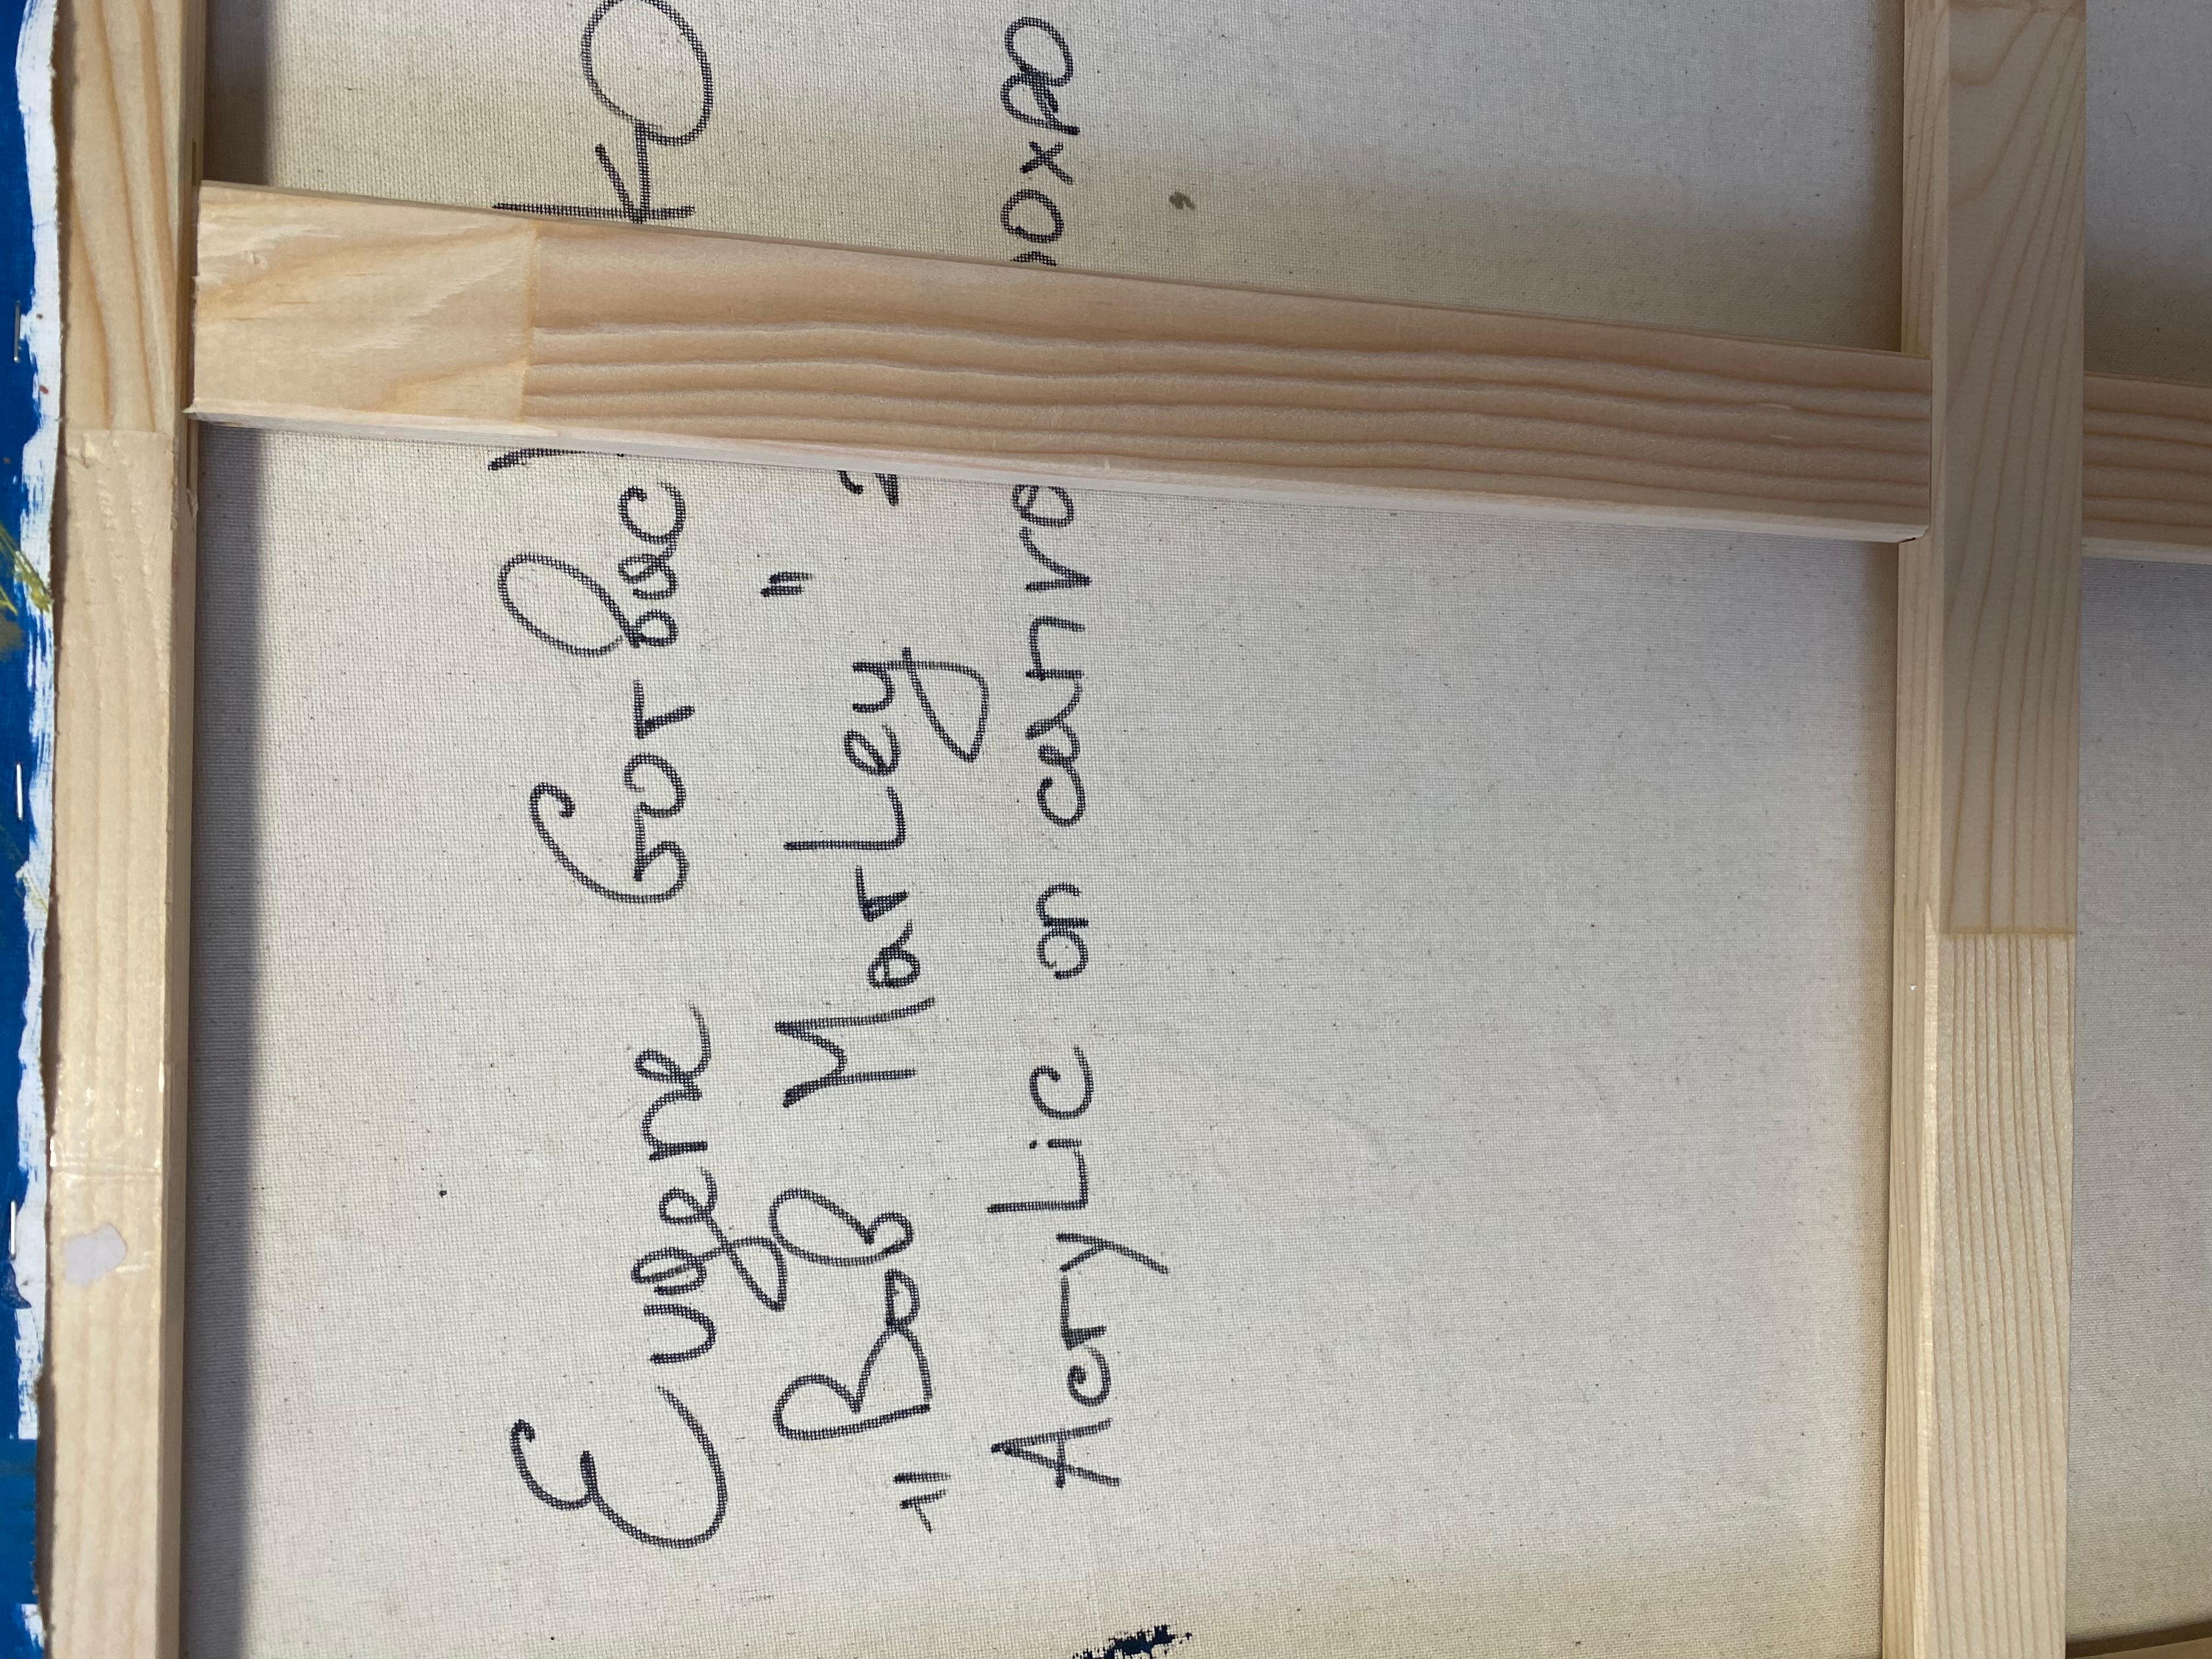 Eugene Gorbac KO
"Bob Marley"
AcryLic on canva 0x80